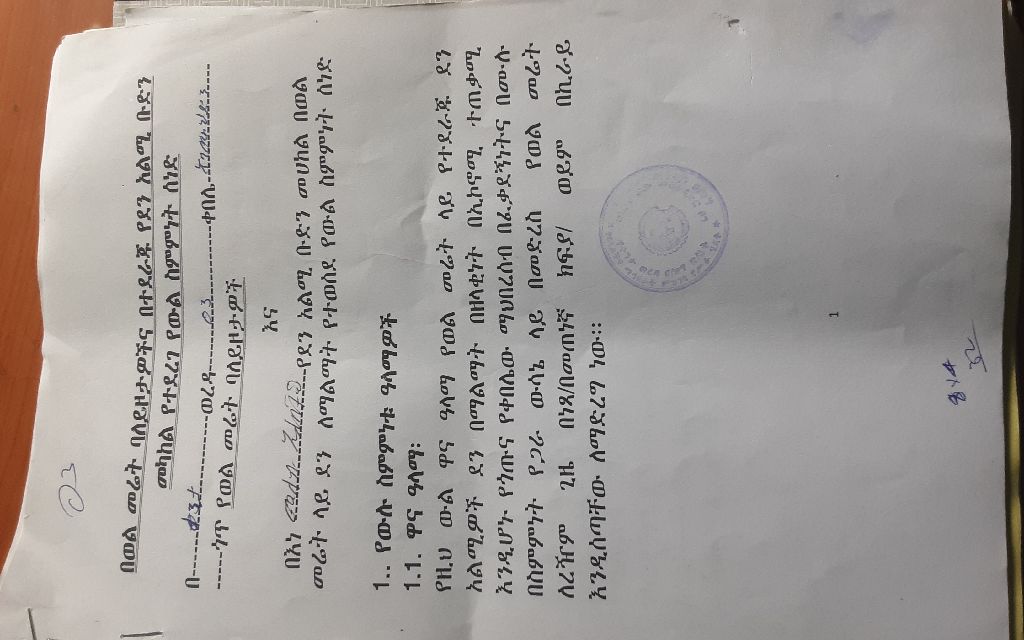 በወል መሬት ባለይዞታዎችና በተደራጁ የደን አልሚ ቡድን
መካከል የተደረገ የውል ስምምነት ሰነድ
በ-----ቋንታ-----------ወረዳ-------ዐን-----------ቀበሌ
------ጎጥ የወል መሬት ባለይዞታዎች
እና
በእነ የደን አልሚ ቡድን መሀከል በወል
መሬት ላይ ደን ለማልማት የተወሰደ የውል ስምምነት ሰነድ
1.. የውሉ ስምምነቱ ዓላማዎች
1.1. ዋና ዓላማ፡
የዚህ ውል ዋና ዓላማ የወል መሬት ላይ የተደራጁ ደን
አልሚዎች ደን በማልማት በዘላቂነት በኢኮኖሚ ተጠቃሚ
እንዲሆኑ የጎጡና የቀበሌው ማህበረሰብ በፈቃደኝነትና በሙሉ
በስምምነት የጋራ ውሳኔ ላይ በመድረስ የወል መሬት
ለረዥም ጊዜ በነጻ/በመጠነኛ ክፍያ/ ወይም በኪራይ
እንዲሰጣቸው ለማድረግ ነው።፡
1